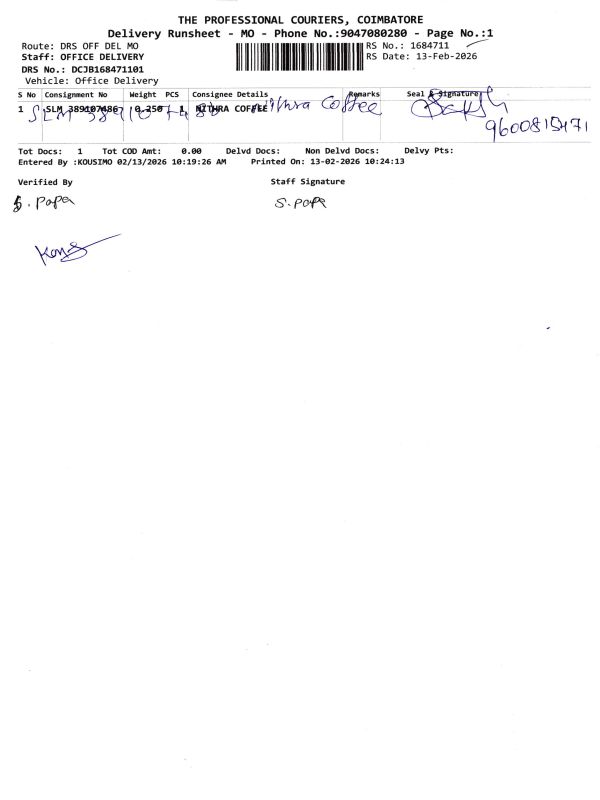 THE PROFESSIONAL COURIERS, COIMBATORE
Delivery Runsheet - MO - Phone No.:9047080280 - Page No.:1
Route: DRS OFF DEL MO RS No.: 1684711
Staff: OFFICE DELIVERY RS Date: 13-Feb-2026
DRS No.: DCJB168471101
Vehicle: Office Delivery
S No Consignment No Weight PCS Consignee Details Remarks Seal & Signature
1 SLM 389107486 0.250 1 NITHRA COFFEE
SLM 389107486 Nithra Coffee
9600815471
Tot Docs: 1 Tot COD Amt: 0.00 Delvd Docs: Non Delvd Docs: Delvy Pts:
Entered By :KOUSIMO 02/13/2026 10:19:26 AM Printed On: 13-02-2026 10:24:13
Verified By Staff Signature
S. Papa S. Papa